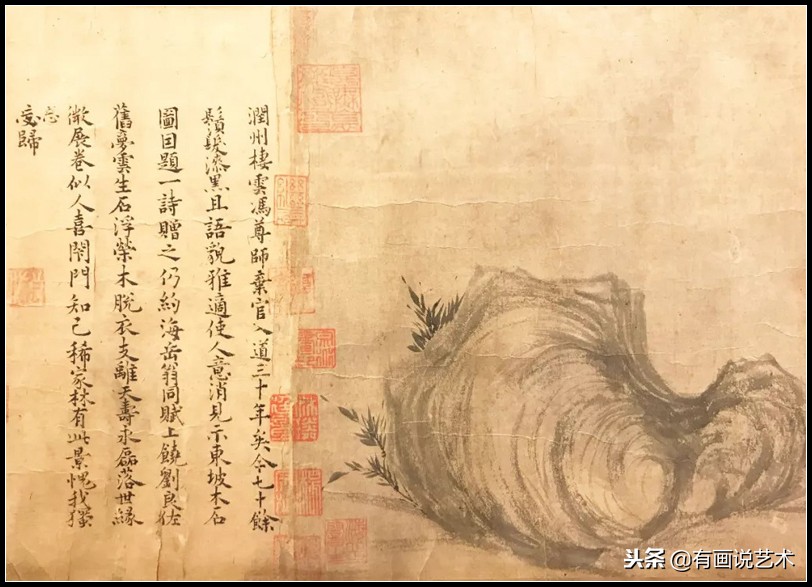 潤州棲雲馮尊師棄官入道三十年矣今七十餘
鬚髮漆黑且語貌雅適使人意消見示東坡木石
圖因題一詩贈之仍約海岳翁同賦上饒劉良佐
舊夢雲生石浮榮木脫衣支離天壽永磊落世緣
微展卷似人喜閉門知己稀家林有此景愧我獨
忘歸
头条 @有画说艺术